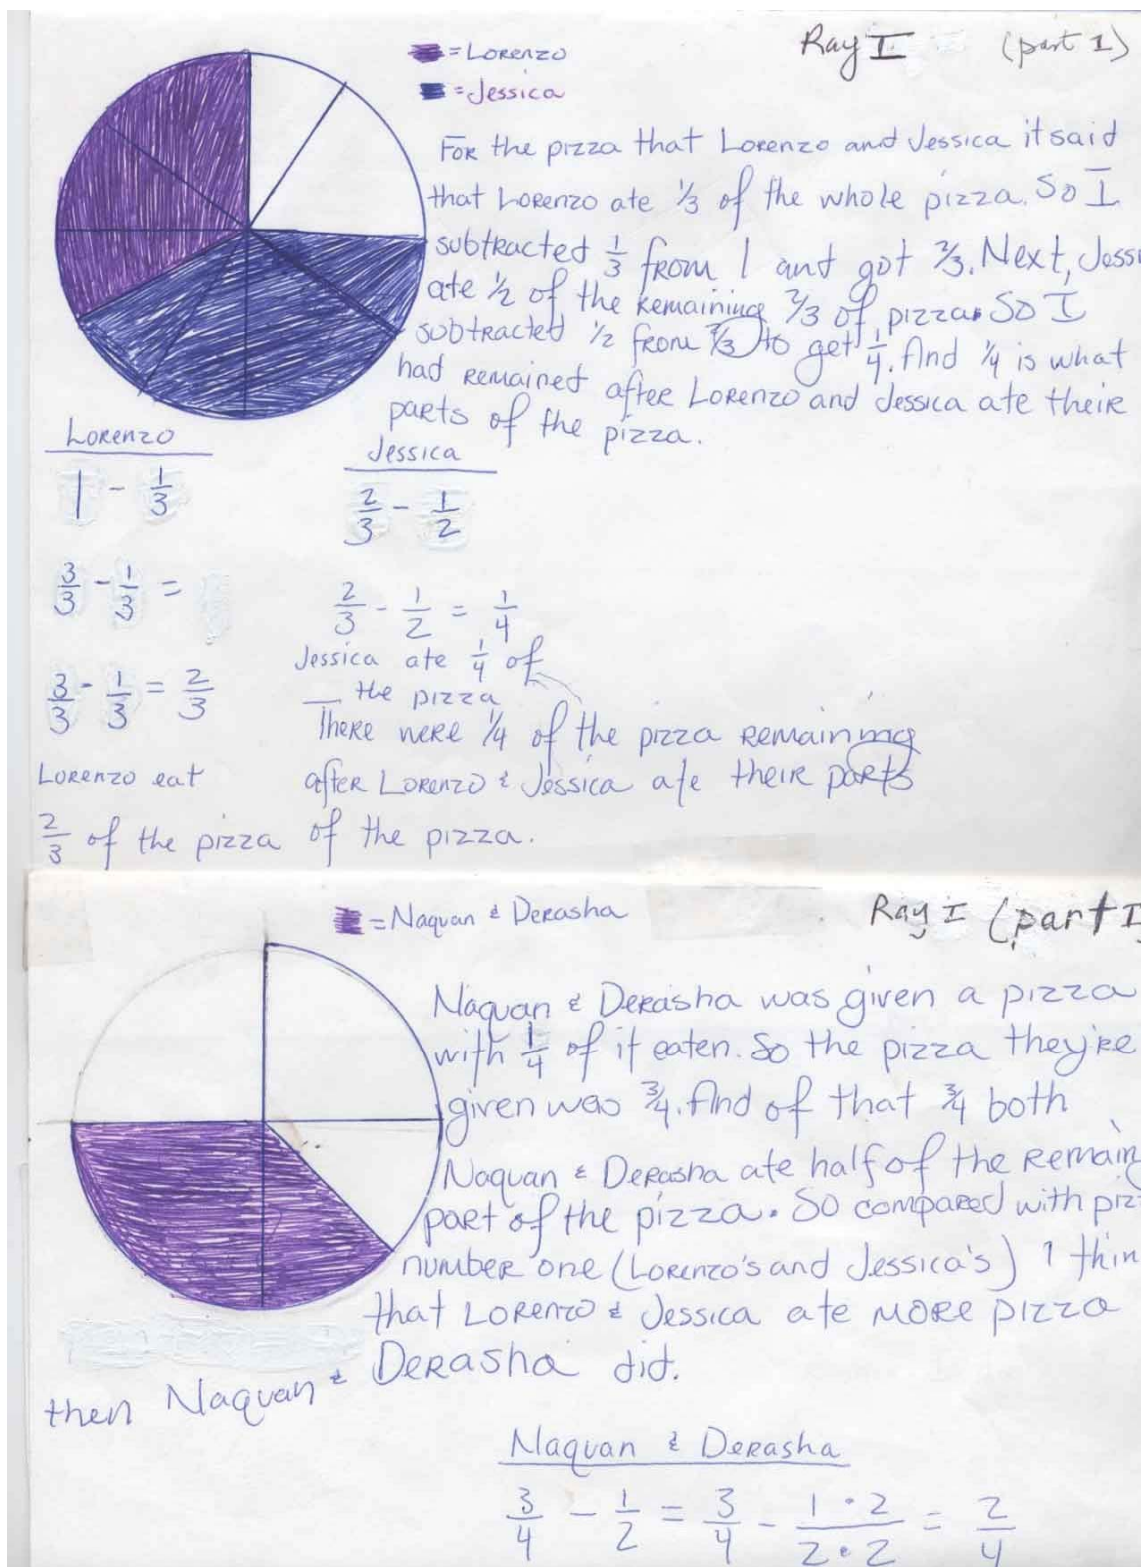 = Lorenzo
Ray I (part 1)
= Jessica
For the pizza that Lorenzo and Jessica it said
that Lorenzo ate 1/3 of the whole pizza. So I
subtracted 1/3 from 1 and got 2/3. Next, Jessi
ate 1/2 of the remaining 2/3 of pizza. So I
subtracted 1/2 from 2/3 to get 1/4. And 1/4 is what
had remained after Lorenzo and Jessica ate their
parts of the pizza.
Lorenzo
1 - 1/3
3/3 - 1/3 =
3/3 - 1/3 = 2/3
Lorenzo eat
2/3 of the pizza
Jessica
2/3 - 1/2
2/3 - 1/2 = 1/4
Jessica ate 1/4 of
the pizza
There were 1/4 of the pizza remaining
after Lorenzo & Jessica ate their parts
of the pizza.
= Naquan & Derasha
Ray I (part I
Naquan & Derasha was given a pizza
with 1/4 of it eaten. So the pizza they're
given was 3/4. And of that 3/4 both
Naquan & Derasha ate half of the remain
part of the pizza. So compared with piz
number one (Lorenzo's and Jessica's) I thin
that Lorenzo & Jessica ate more pizza
then Naquan & Derasha did.
Naquan & Derasha
3/4 - 1/2 = 3/4 - 1 · 2 / 2 · 2 = 2/4